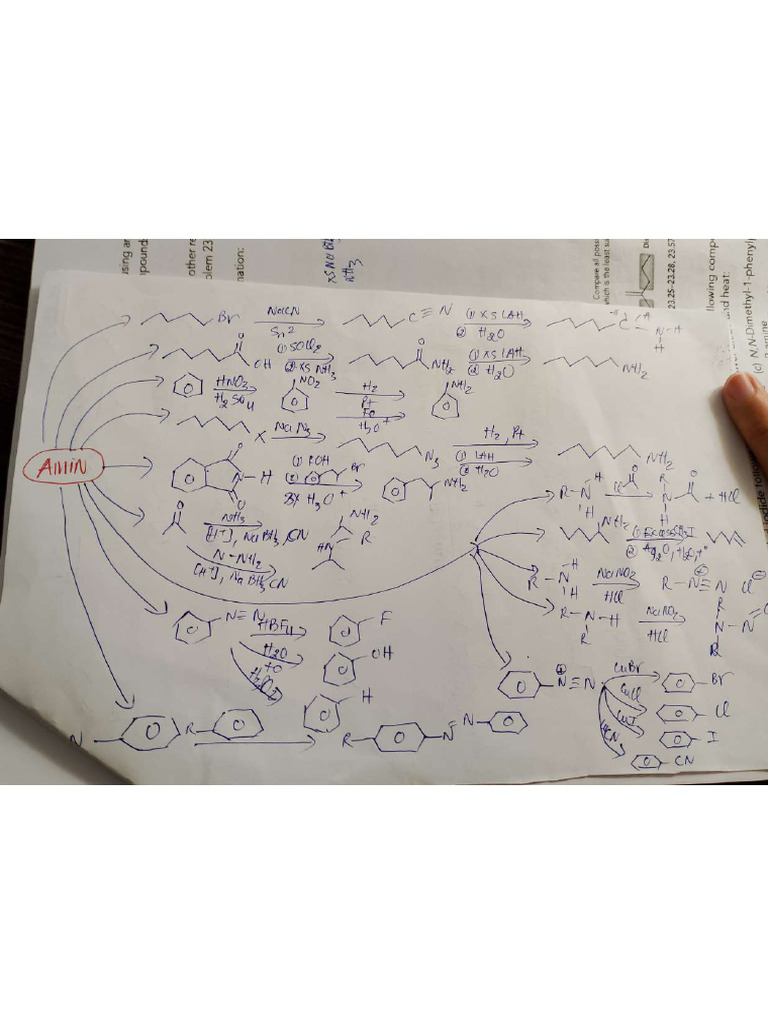 using ar
pounds
other re
blem 23
mation:
XS NaBH
NH3
Compare all poss
which is the least su
23.25–23.28, 23.57
llowing compo
nd heat:
(c) N,N-Dimethyl-1-phenyl
iodide follo
AMIN
Br NaCN SN2 C≡N ① XS LAH ② H2O C N-H H
OH ① SOCl2 ② XS NH3 O NH2 ① XS LAH ② H2O NH2
HNO3 H2SO4 NO2 H2 Pt Fe H3O+ NH2
X NaN3 N3 H2, Pt ① LAH ② H2O NH2
O N-H O ① KOH ② Br ③ H3O+ NH2
R-N H H O Cl R N H O + HCl
O NH3 [H+], NaBH3CN NH2 R HN
N-NH2 [H+], NaBH3CN
NH2 ① I ② Ag2O, H2O,
R-N H H NaNO2 HCl R-N≡N Cl
R-N-H R NaNO2 HCl R N-N R
N≡N HBF4 F
H2O OH
H3PO2 H
N≡N CuBr Br
CuCl Cl
CuI I
CuCN CN
N R R N=N